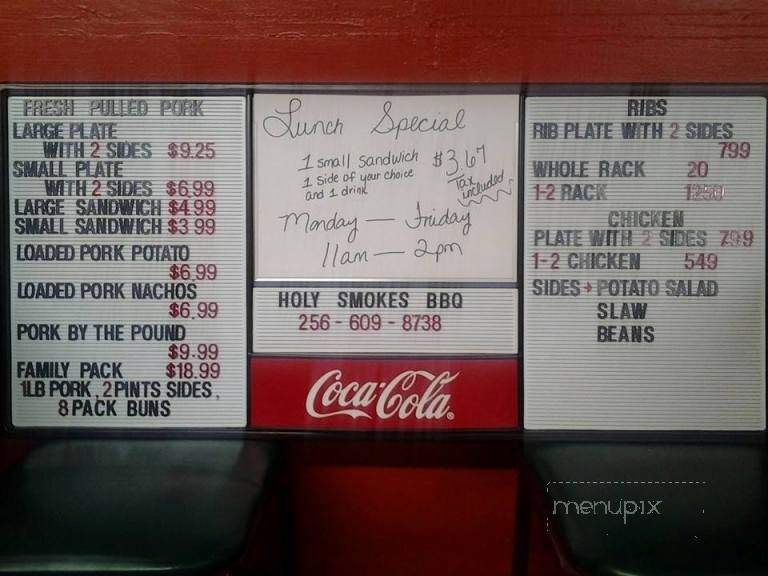 FRESH PULLED PORK
LARGE PLATE
WITH 2 SIDES $9.25
SMALL PLATE
WITH 2 SIDES $6.99
LARGE SANDWICH $4.99
SMALL SANDWICH $3 99
LOADED PORK POTATO
$6.99
LOADED PORK NACHOS
$6.99
PORK BY THE POUND
$9.99
FAMILY PACK $18.99
1LB PORK, 2 PINTS SIDES,
8 PACK BUNS
Lunch Special
1 small sandwich $3.67
1 side of your choice
and 1 drink
Tax
included
Monday — Friday
11am — 2pm
HOLY SMOKES BBQ
256 - 609 - 8738
Coca-Cola
RIBS
RIB PLATE WITH 2 SIDES
799
WHOLE RACK 20
1-2 RACK
CHICKEN
PLATE WITH 2 SIDES 799
1-2 CHICKEN 549
SIDES + POTATO SALAD
SLAW
BEANS
menupix